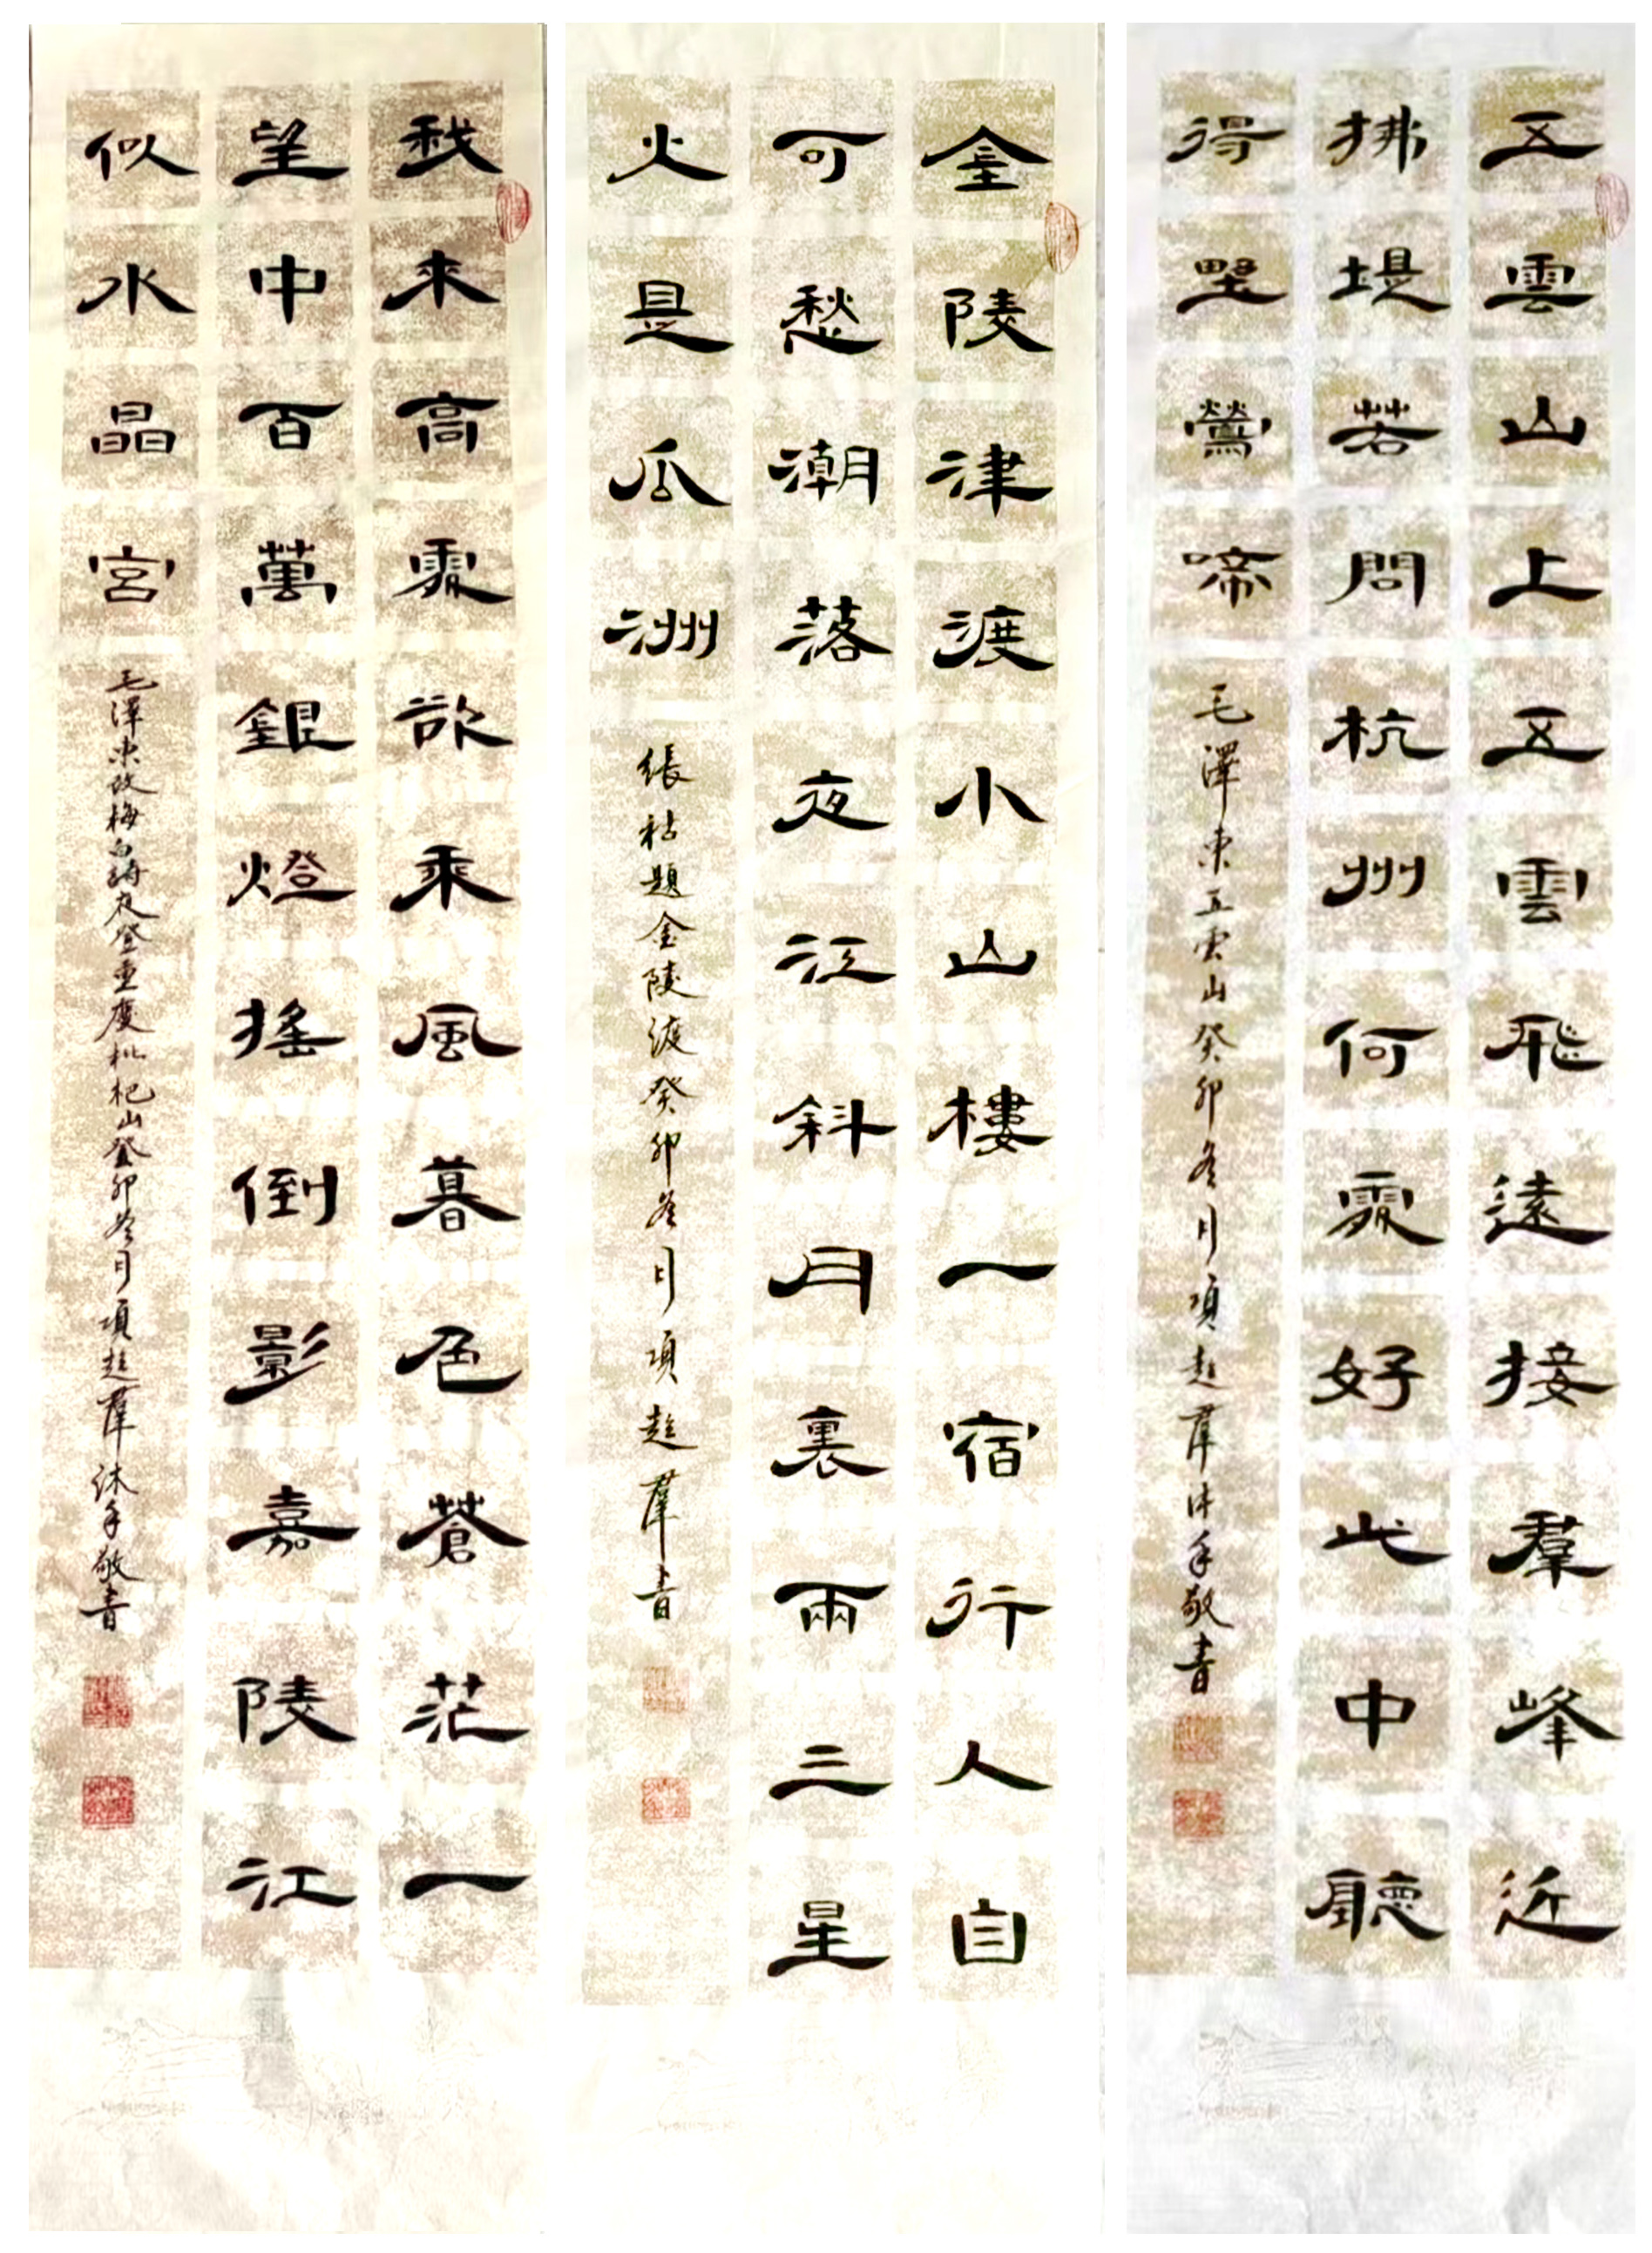 五雲山上五雲飛遠接羣峰近
拂堤若問杭州何處好此中聽
得野鶯啼
毛澤東五雲山癸卯冬月項超羣沐手敬書
金陵津渡小山樓一宿行人自
可愁潮落夜江斜月裏兩三星
火是瓜洲
張祜題金陵渡癸卯冬月項超羣書
我來高處欲乘風暮色蒼茫一
望中百萬銀燈搖倒影嘉陵江
似水晶宮
毛澤東改梅白詩夜登重慶枇杷山癸卯冬月項超羣沐手敬書